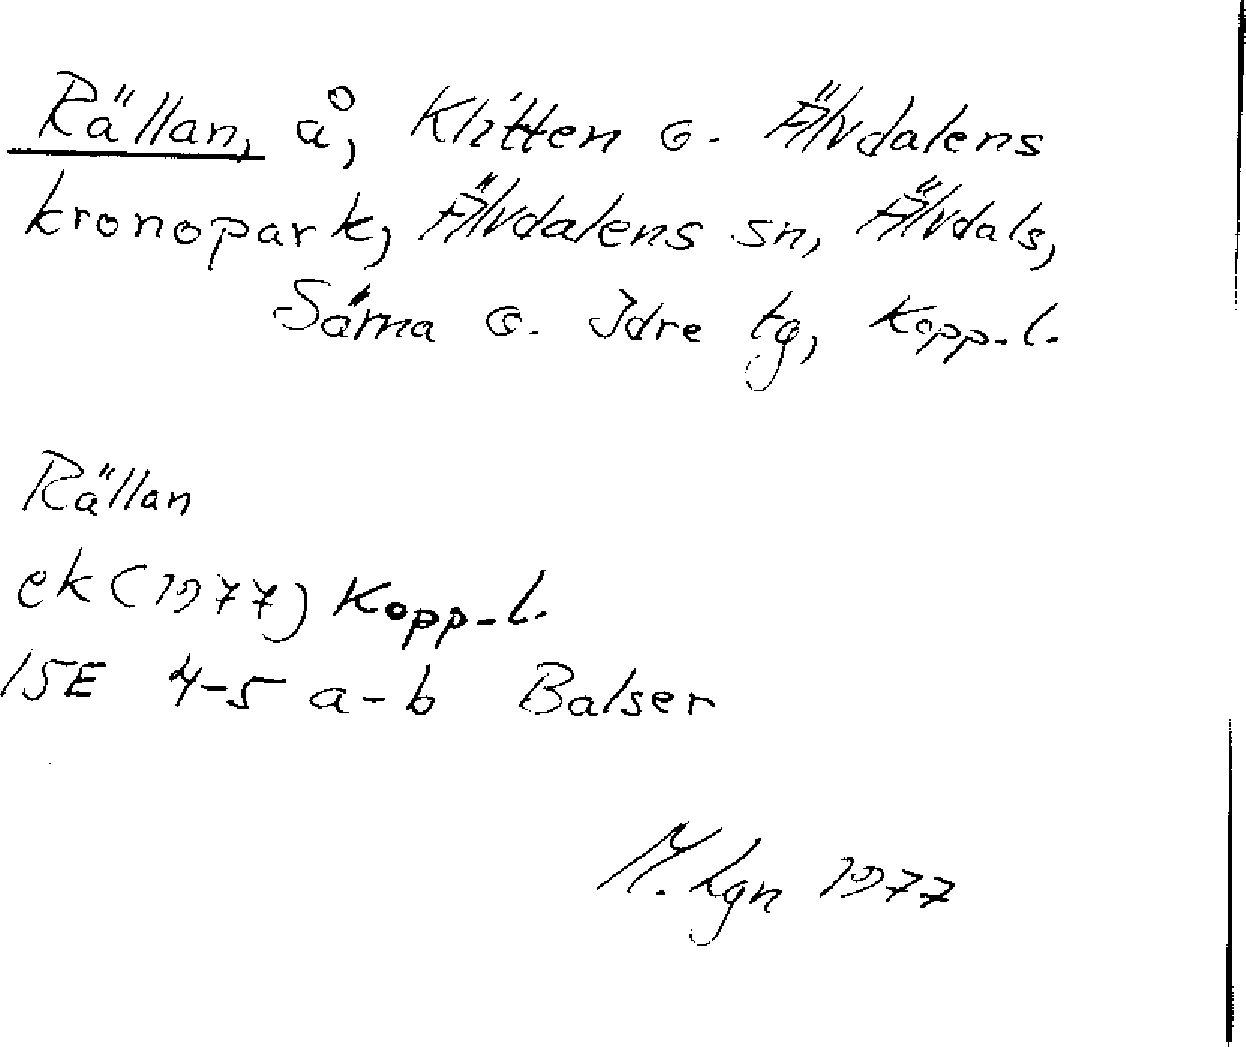 Rällan, å, Klitten o. Älvdalens
kronopark, Älvdalens sn, Älvdals,
Särna o. Idre tg, Kopp. l.
Rällan
ek (1977) Kopp. l.
15E 4-5 a-b Balser
M. Lgn 1977